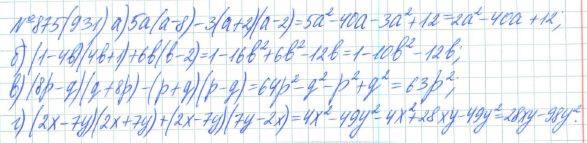 №875(931) а) 5a(a-8)-3(a+2)(a-2)=5a²-40a-3a²+12=2a²-40a+12;
б) (1-4b)(4b+1)+6b(b-2)=1-16b²+6b²-12b=1-10b²-12b;
в) (8p-q)(q+8p)-(p+q)(p-q)=64p²-q²-p²+q²=63p²;
г) (2x-7y)(2x+7y)+(2x-7y)(7y-2x)=4x²-49y²-4x²+28xy-49y²=28xy-98y².